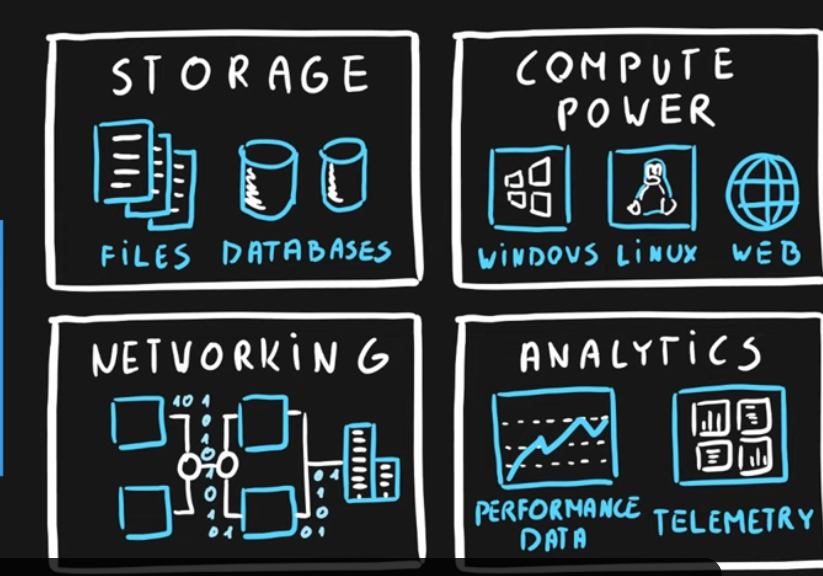 STORAGE
FILES DATABASES
COMPUTE
POWER
WINDOWS LINUX WEB
NETWORKING
10 1
0
1
0
1
0
1
01
01
1
0
01
ANALYTICS
PERFORMANCE
DATA
TELEMETRY